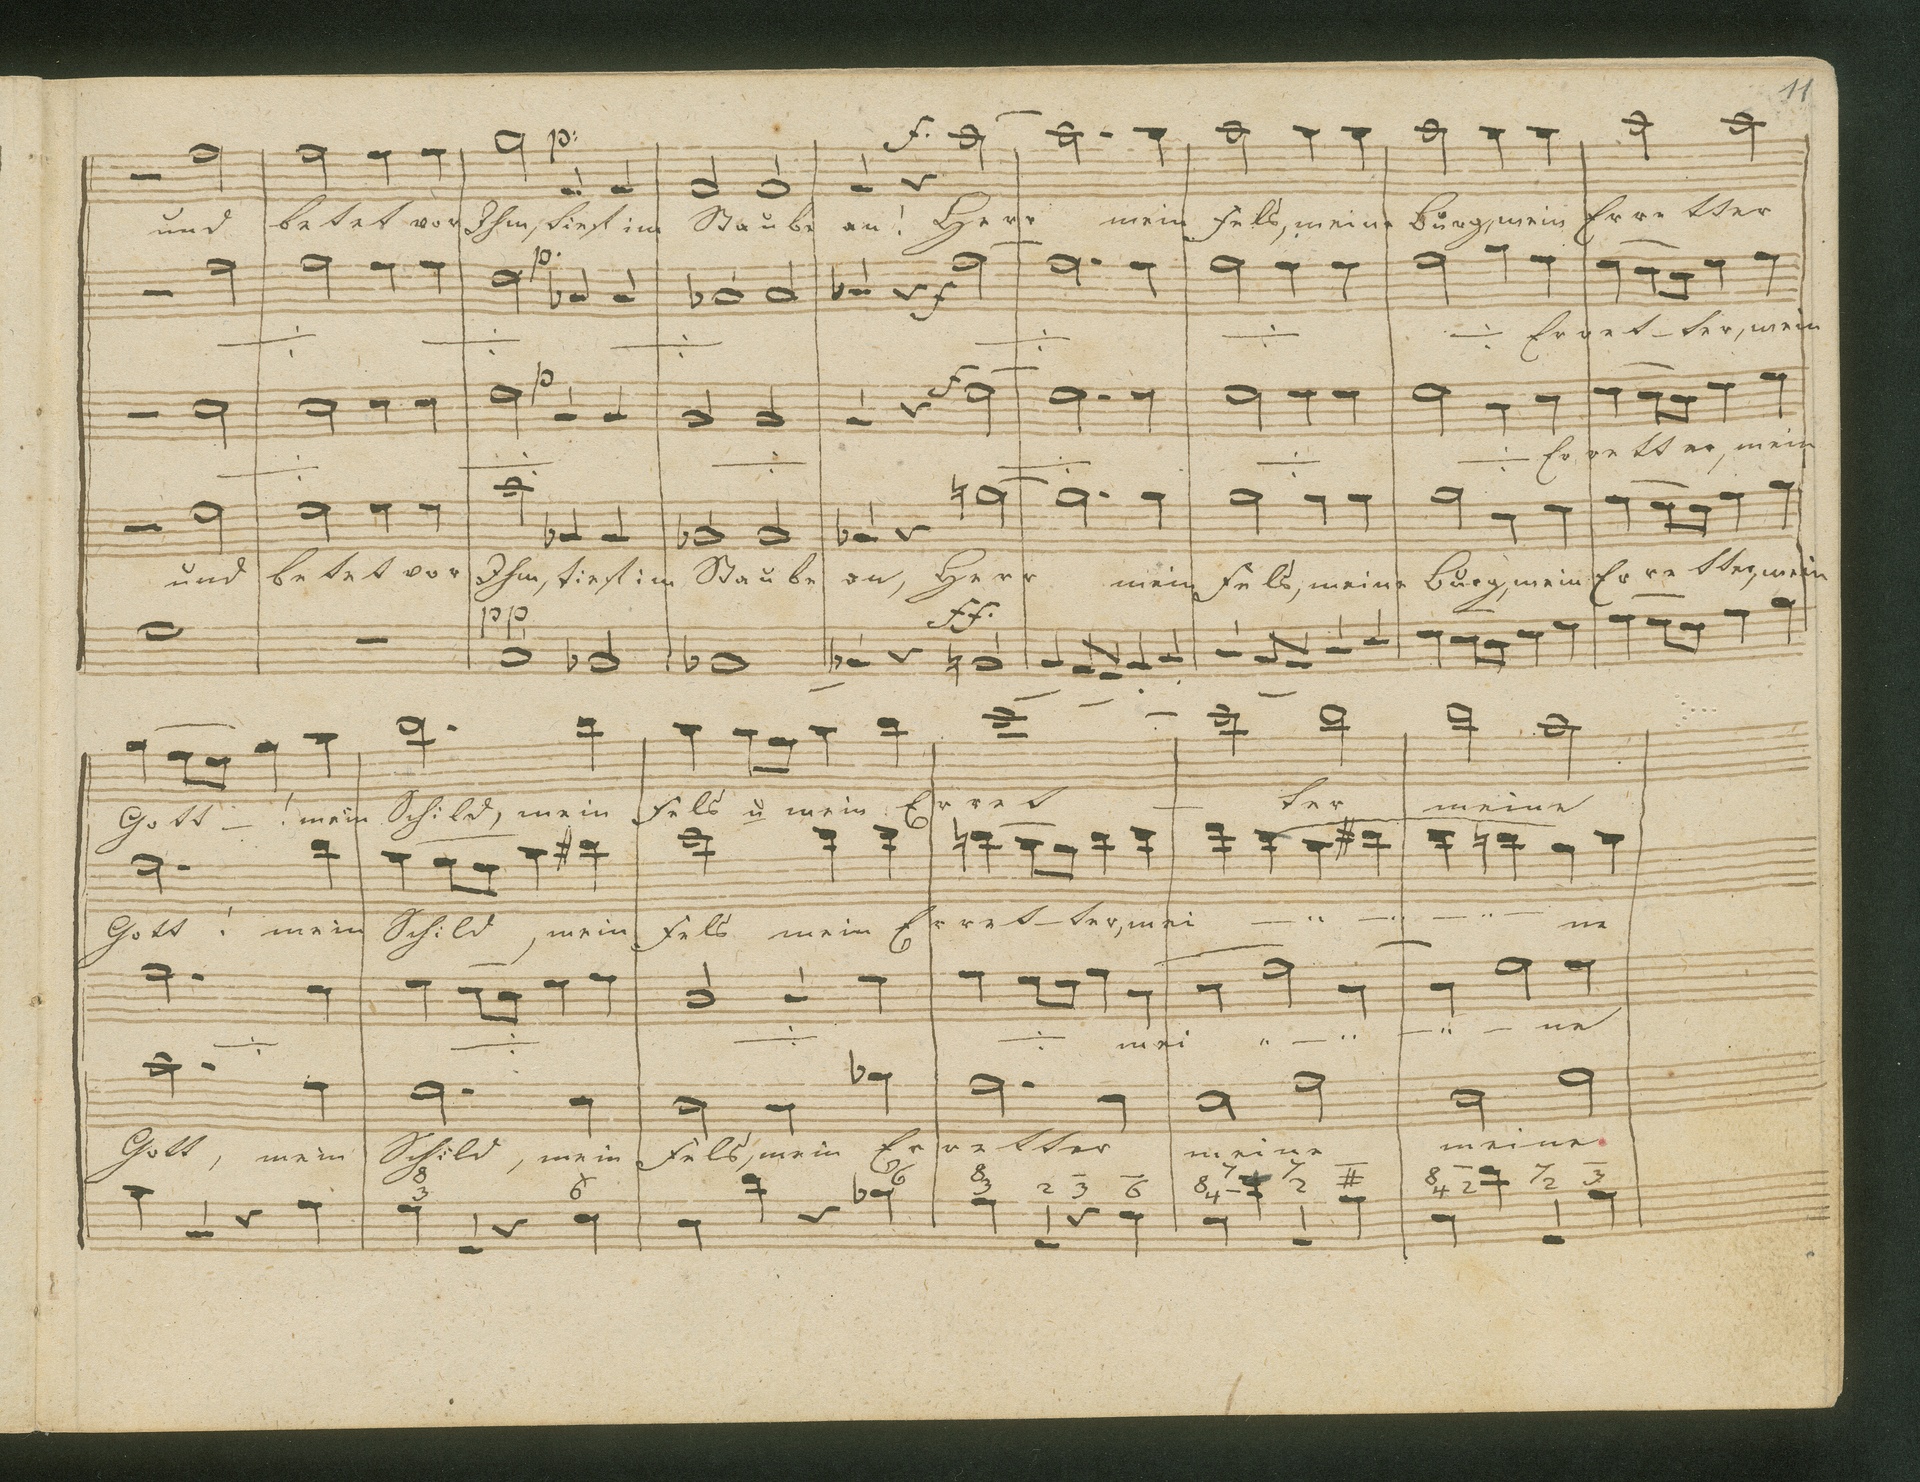 11
p: f.
und betet vor Ihm, tief im Staube an! Herr mein Fels, meine Burg, mein Erretter
p. f
Erret-ter, mein
p f
Erretter, mein
und betet vor Ihm, tief im Staube an, Herr mein Fels, meine Burg, mein Erretter, mein
pp ff.
Gott - ! mein Schild, mein Fels u mein Erret - ter meine
Gott ! mein Schild, mein Fels mein Erret-ter, mei - - - ne
mei - - ne
Gott, mein Schild, mein Fels, mein Erretter meine meine
8 3 6 6 8 3 2 3 6 8 7 4 - 7 2 # 8 4 2 7 2 3